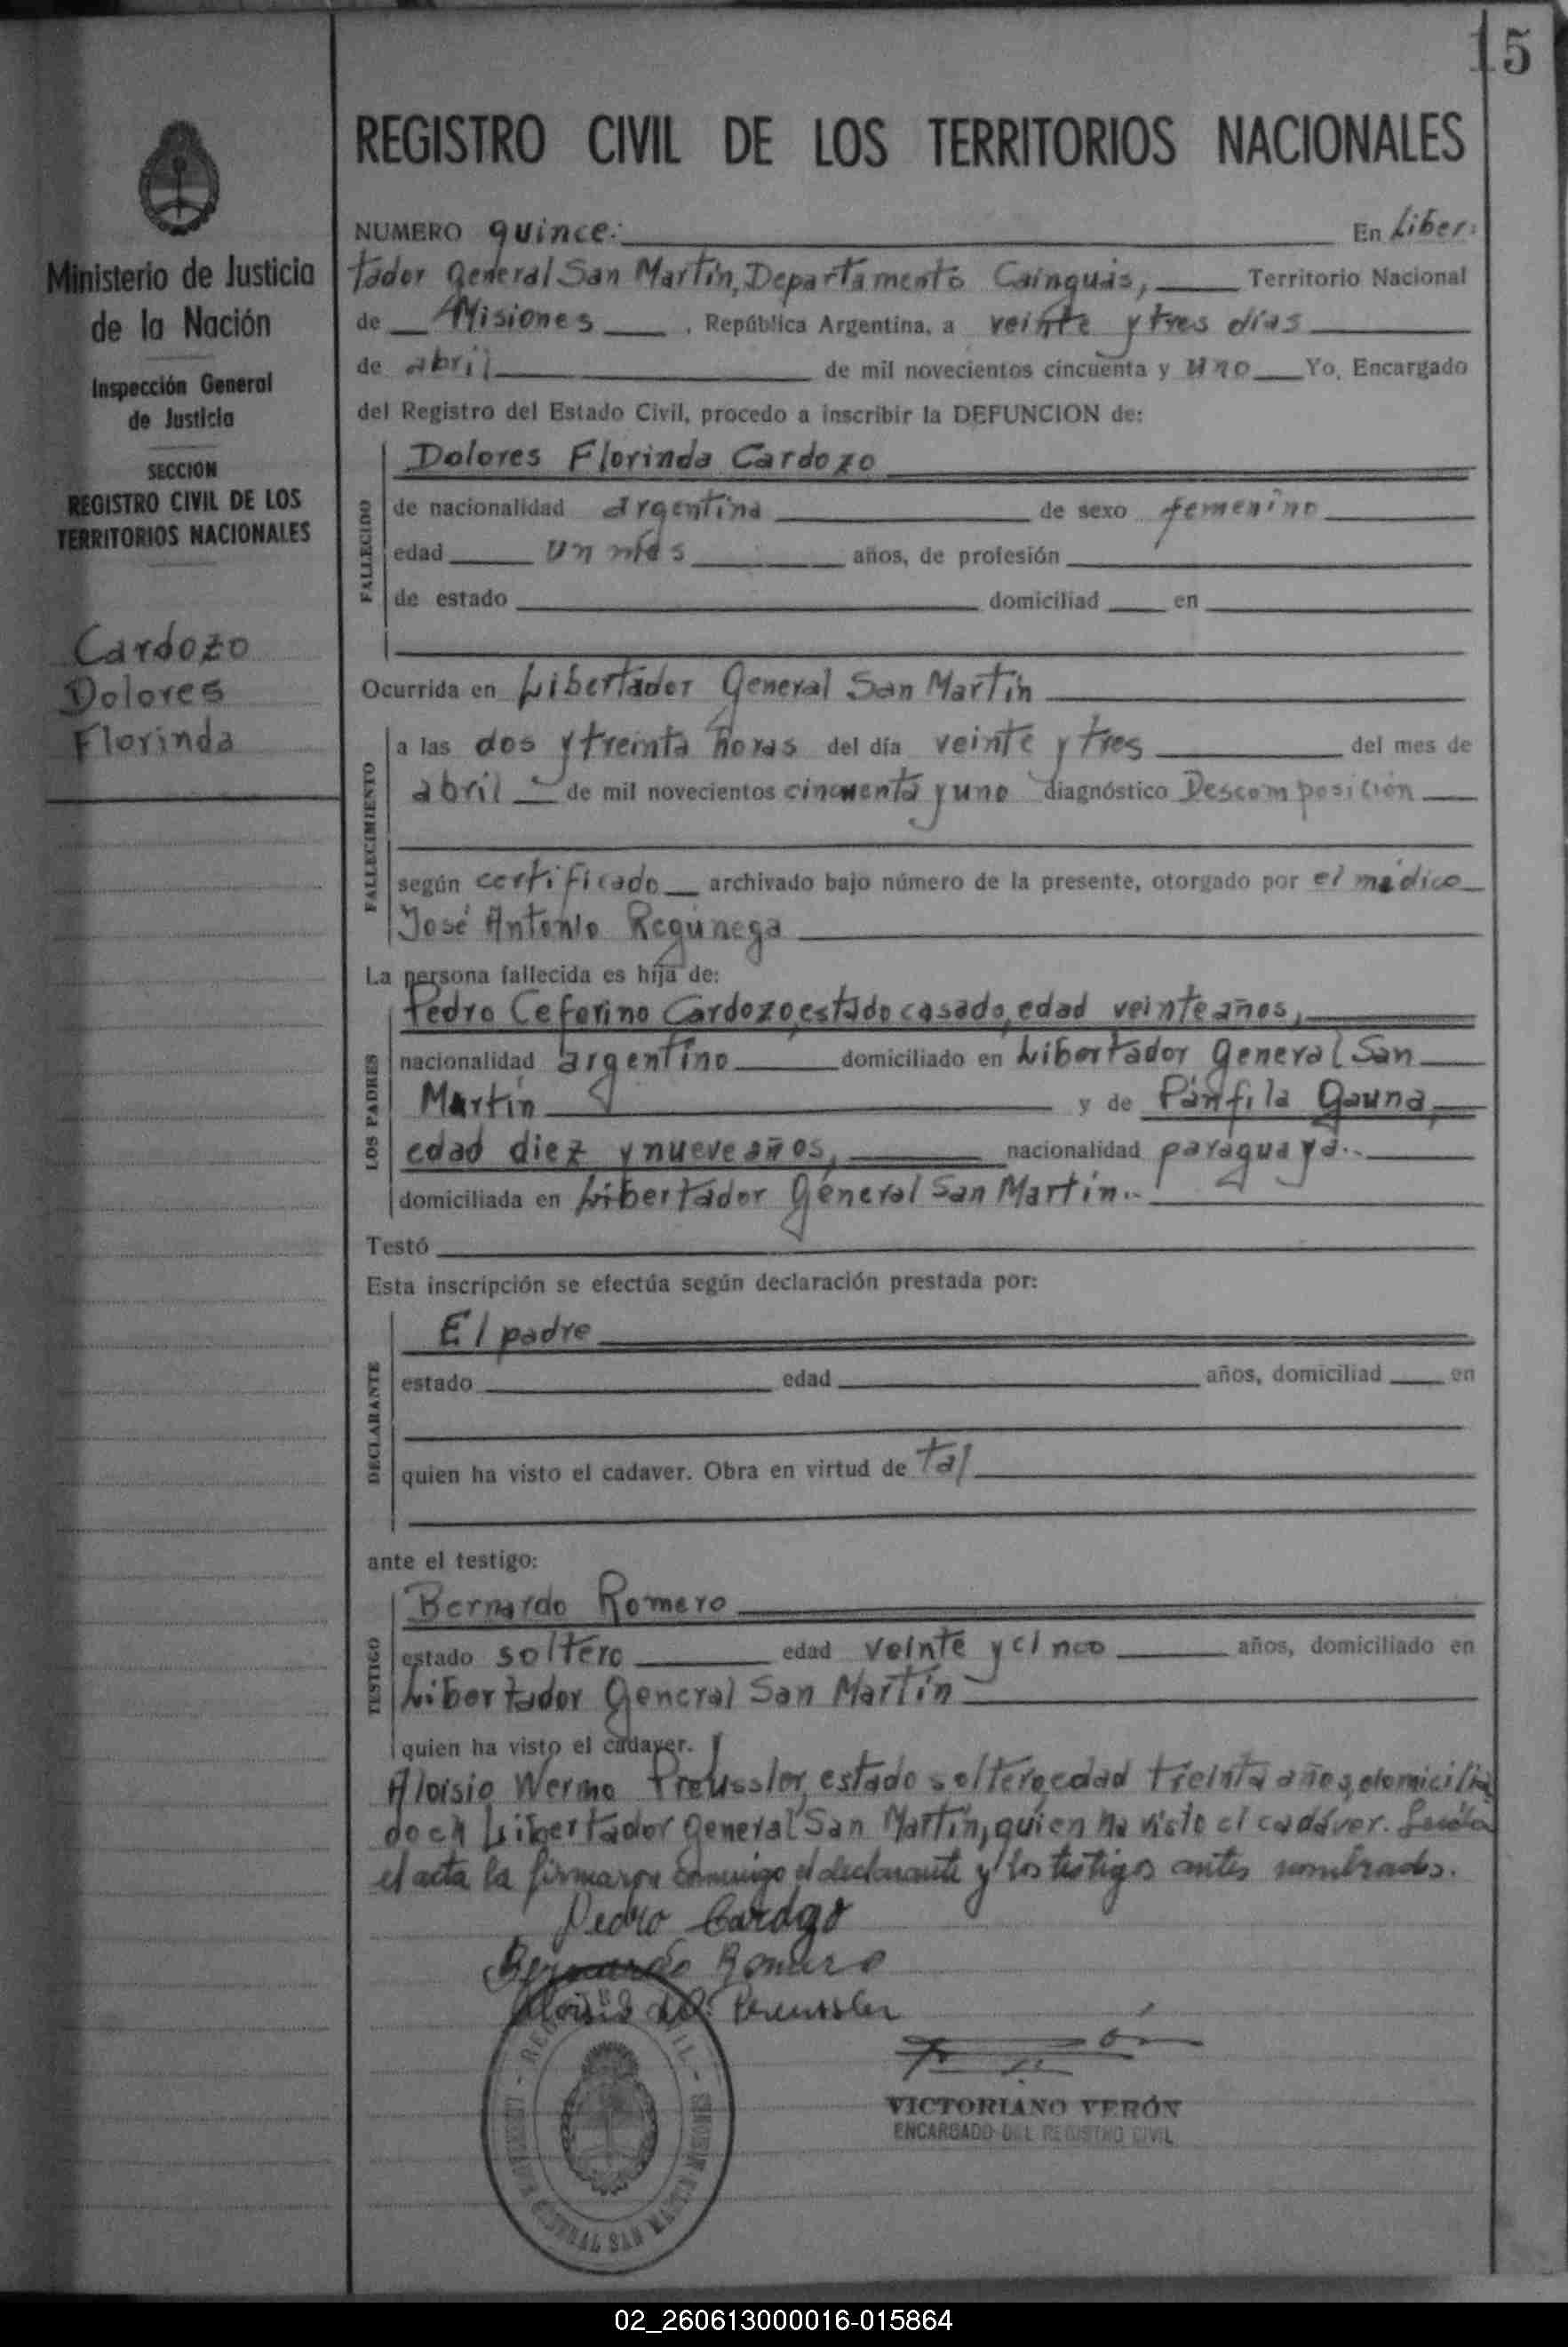 15
REGISTRO CIVIL DE LOS TERRITORIOS NACIONALES
Ministerio de Justicia
de la Nación
Inspección General
de Justicia
SECCION
REGISTRO CIVIL DE LOS
TERRITORIOS NACIONALES
Cardozo
Dolores
Florinda
NUMERO quince. En Liber:
tador General San Martín, Departamento Cainguás, Territorio Nacional
de Misiones, República Argentina, a veinte y tres días
de abril de mil novecientos cincuenta y uno Yo, Encargado
del Registro del Estado Civil, procedo a inscribir la DEFUNCION de:
FALLECIDO
Dolores Florinda Cardozo
de nacionalidad argentina de sexo femenino
edad un mes años, de profesión
de estado domiciliad en
Ocurrida en Libertador General San Martín
FALLECIMIENTO
a las dos y treinta horas del día veinte y tres del mes de
abril de mil novecientos cincuenta y uno diagnóstico Descomposición
según certificado archivado bajo número de la presente, otorgado por el médico
José Antonio Regúnega
La persona fallecida es hija de:
LOS PADRES
Pedro Ceferino Cardozo, estado casado, edad veinte años,
nacionalidad argentino domiciliado en Libertador General San
Martín y de Pánfila Gauna,
edad diez y nueve años, nacionalidad paraguaya.
domiciliada en Libertador General San Martín.
Testó
Esta inscripción se efectúa según declaración prestada por:
DECLARANTE
El padre
estado edad años, domiciliad en
quien ha visto el cadaver. Obra en virtud de tal
ante el testigo:
TESTIGO
Bernardo Romero
estado soltero edad veinte y cinco años, domiciliado en
Libertador General San Martín
quien ha visto el cadaver. y
Aloisio Werno Preussler, estado soltero, edad treinta años, domicilia
do en Libertador General San Martín, quien ha visto el cadáver. Leída
el acta la firmaron conmigo el declarante y los testigos antes nombrados.
Pedro Cardozo
Bernardo Romero
Aloisio W. Preussler
VICTORIANO VERÓN
ENCARGADO DEL REGISTRO CIVIL
GENERAL SAN MARTIN MISIONES
02_260613000016-015864